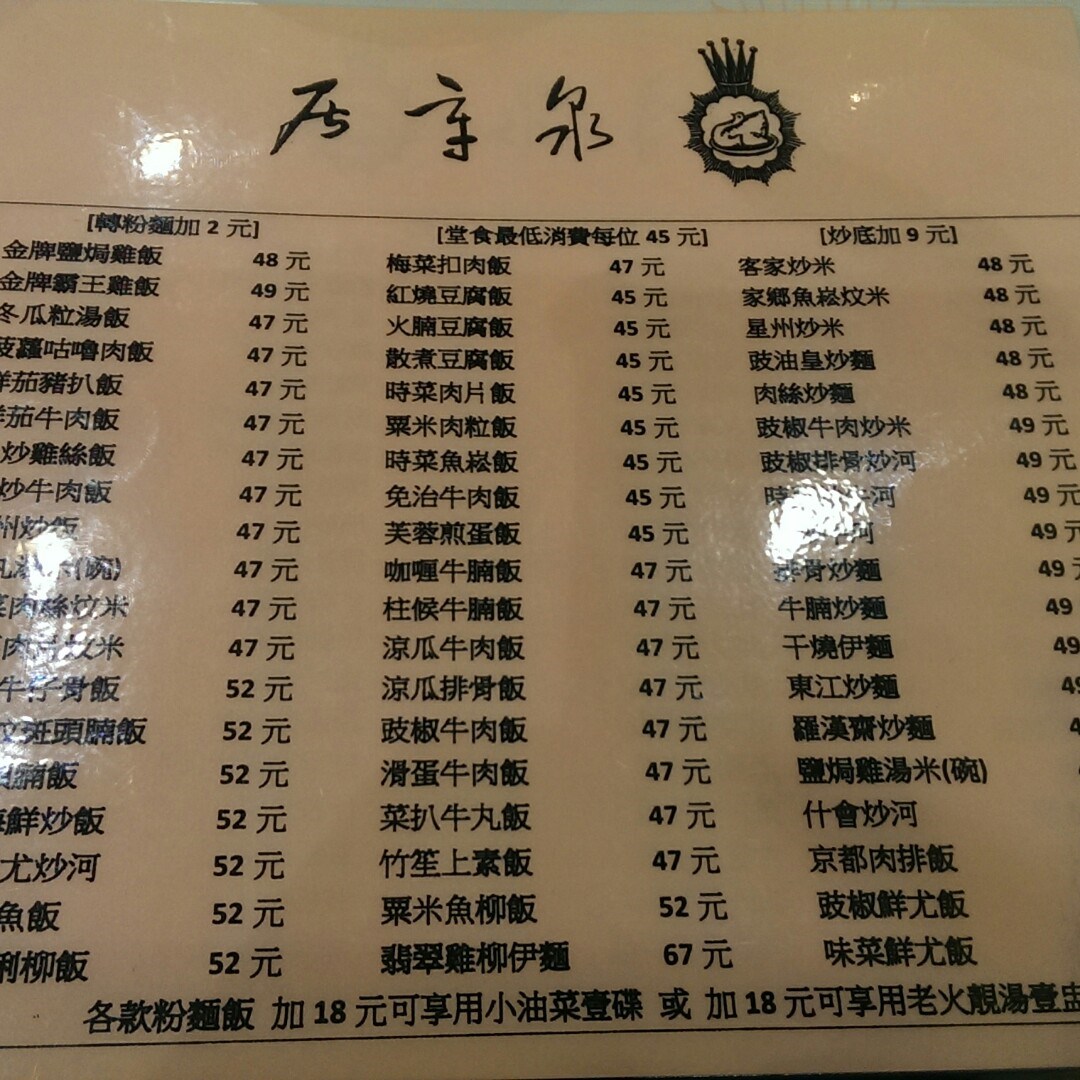 泉章居
[轉粉麵加 2 元]
金牌鹽焗雞飯 48 元
金牌霸王雞飯 49 元
冬瓜粒湯飯 47 元
菠蘿咕嚕肉飯 47 元
茄豬扒飯 47 元
茄牛肉飯 47 元
炒雞絲飯 47 元
炒牛肉飯 47 元
州炒飯 47 元
(碗) 47 元
菜肉絲炆米 47 元
肉片炆米 47 元
牛仔骨飯 52 元
炆斑頭腩飯 52 元
腩飯 52 元
海鮮炒飯 52 元
尤炒河 52 元
魚飯 52 元
利柳飯 52 元
[堂食最低消費每位 45 元]
梅菜扣肉飯 47 元
紅燒豆腐飯 45 元
火腩豆腐飯 45 元
散煮豆腐飯 45 元
時菜肉片飯 45 元
粟米肉粒飯 45 元
時菜魚崧飯 45 元
免治牛肉飯 45 元
芙蓉煎蛋飯 45 元
咖喱牛腩飯 47 元
柱候牛腩飯 47 元
涼瓜牛肉飯 47 元
涼瓜排骨飯 47 元
豉椒牛肉飯 47 元
滑蛋牛肉飯 47 元
菜扒牛丸飯 47 元
竹笙上素飯 47 元
粟米魚柳飯 52 元
翡翠雞柳伊麵 67 元
[炒底加 9 元]
客家炒米 48 元
家鄉魚崧炆米 48 元
星州炒米 48 元
豉油皇炒麵 48 元
肉絲炒麵 48 元
豉椒牛肉炒米 49 元
豉椒排骨炒河 49 元
時 河 49 元
河 49 元
排骨炒麵 49
牛腩炒麵 49
干燒伊麵 49
東江炒麵
羅漢齋炒麵
鹽焗雞湯米(碗)
什會炒河
京都肉排飯
豉椒鮮尤飯
味菜鮮尤飯
各款粉麵飯 加 18 元可享用小油菜壹碟 或 加 18 元可享用老火靚湯壹盅